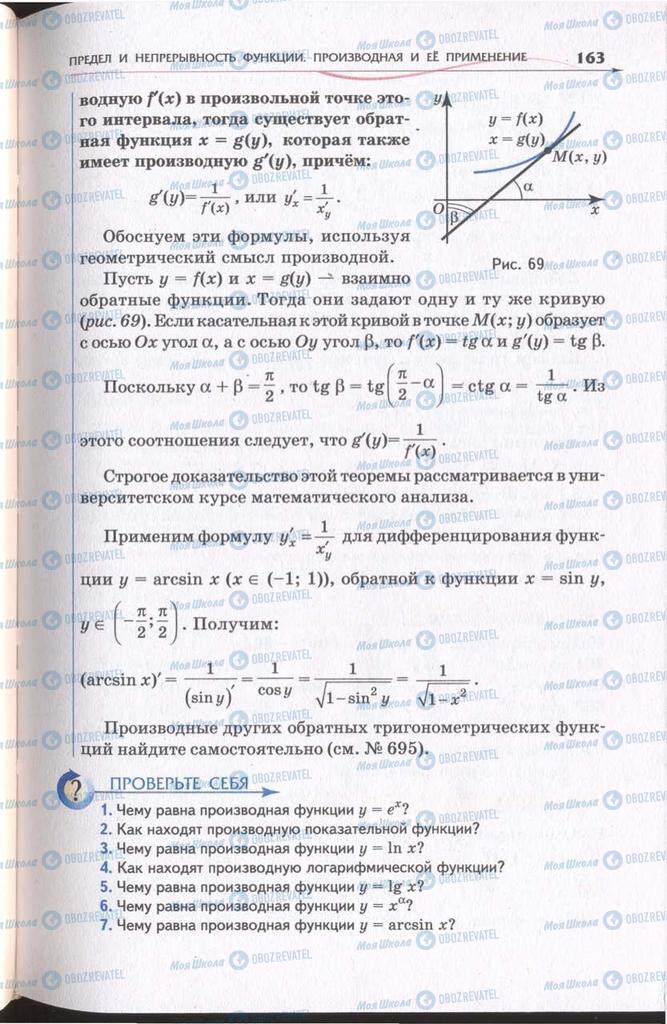 ПРЕДЕЛ И НЕПРЕРЫВНОСТЬ ФУНКЦИИ. ПРОИЗВОДНАЯ И ЕЁ ПРИМЕНЕНИЕ 163
водную f′(x) в произвольной точке это-
го интервала, тогда существует обрат-
ная функция x = g(y), которая также
имеет производную g′(y), причём:
g′(y)= 1/f′(x) , или y′ₓ = 1/x′ᵧ .
Обоснуем эти формулы, используя
геометрический смысл производной.
y
y = f(x)
x = g(y)
M(x, y)
α
O
β
x
Рис. 69
Пусть y = f(x) и x = g(y) — взаимно
обратные функции. Тогда они задают одну и ту же кривую
(рис. 69). Если касательная к этой кривой в точке M(x; y) образует
с осью Ox угол α, а с осью Oy угол β, то f′(x) = tg α и g′(y) = tg β.
Поскольку α + β = π/2 , то tg β = tg(π/2 − α) = ctg α = 1/tg α . Из
этого соотношения следует, что g′(y)= 1/f′(x) .
Строгое доказательство этой теоремы рассматривается в уни-
верситетском курсе математического анализа.
Применим формулу y′ₓ = 1/x′ᵧ для дифференцирования функ-
ции y = arcsin x (x ∈ (−1; 1)), обратной к функции x = sin y,
y ∈ (−π/2; π/2) . Получим:
(arcsin x)′ = 1/(sin y)′ = 1/cos y = 1/√(1−sin² y) = 1/√(1−x²) .
Производные других обратных тригонометрических функ-
ций найдите самостоятельно (см. № 695).
? ПРОВЕРЬТЕ СЕБЯ
1. Чему равна производная функции y = eˣ?
2. Как находят производную показательной функции?
3. Чему равна производная функции y = ln x?
4. Как находят производную логарифмической функции?
5. Чему равна производная функции y = lg x?
6. Чему равна производная функции y = x^α?
7. Чему равна производная функции y = arcsin x?
Моя Школа OBOZREVATEL